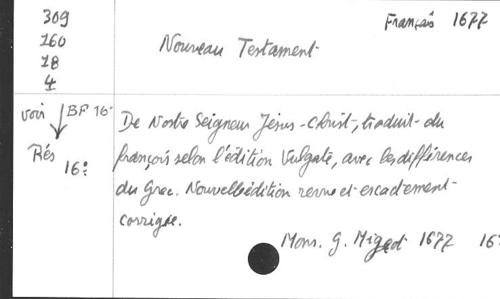 309
160
18
4
Français 1677
Nouveau Testament
voir BF 16°
Rés 16°
De Nostre Seigneur Jésus-Christ, traduit du
françois selon l'édition Vulgate, avec les différences
du Grec. Nouvelle édition revue et exactement
corrigée.
Mons. G. Migeot 1677 16°